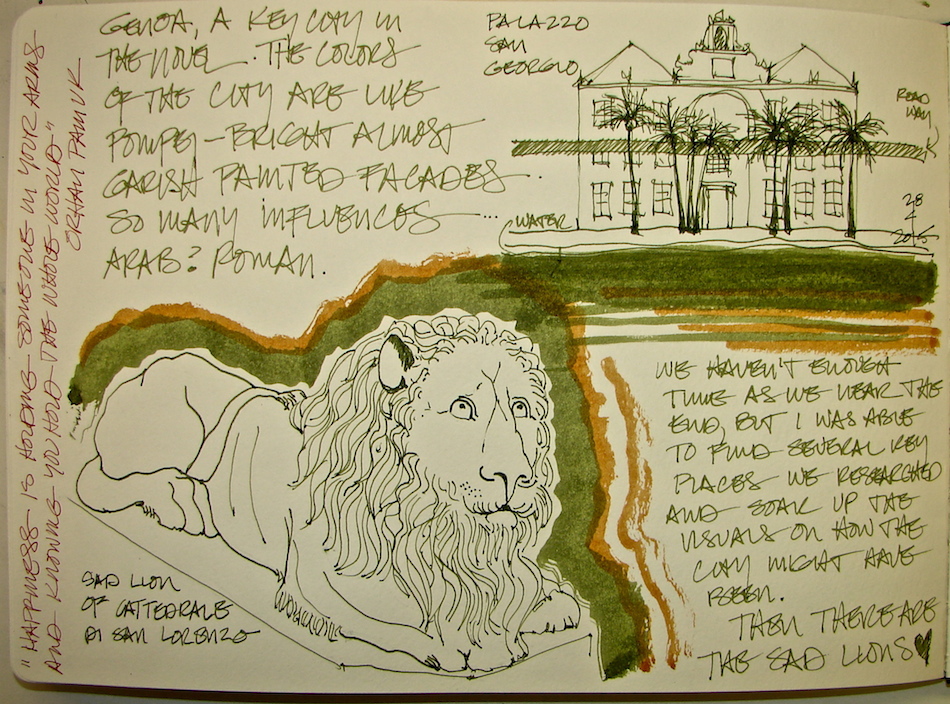 "HAPPINESS IS HOLDING SOMEONE IN YOUR ARMS
AND KNOWING YOU HOLD THE WHOLE WORLD"
ORHAN PAMUK
GENOA, A KEY CITY IN
THE NOVEL. THE COLORS
OF THE CITY ARE LIKE
POMPEJ - BRIGHT ALMOST
GARISH PAINTED FACADES ..
SO MANY INFLUENCES ...
ARAB? ROMAN.
PALAZZO
SAN
GEORGIO
ROAD
WAY
WATER
28
4
2015
WE HAVEN'T ENOUGH
TIME AS WE NEAR THE
END, BUT I WAS ABLE
TO FIND SEVERAL KEY
PLACES WE RESEARCHED
AND SOAK UP THE
VISUALS ON HOW THE
CITY MIGHT HAVE
BEEN.
THEN THERE ARE
THE SAD LIONS♥
SAD LION
OF CATTEDRALE
DI SAN LORENZO